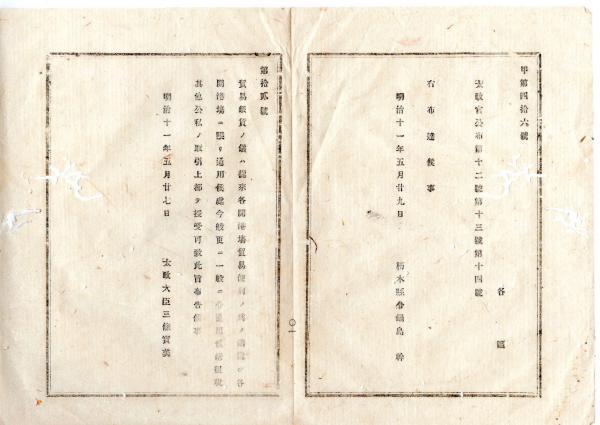 甲第四拾六號
各區
太政官公布第十二號第十三號第十四號
右布達候事
明治十一年五月廿九日
栃木縣令鍋島幹
第拾貳號
貿易銀貨ノ儀ハ從來各開港場貿易便利ノ爲メ
開港場ニ限リ通用候處今般更ニ一般
其他公私ノ取引上都テ授受可致此旨布告候事
明治十一年五月廿七日
太政大臣三條實美